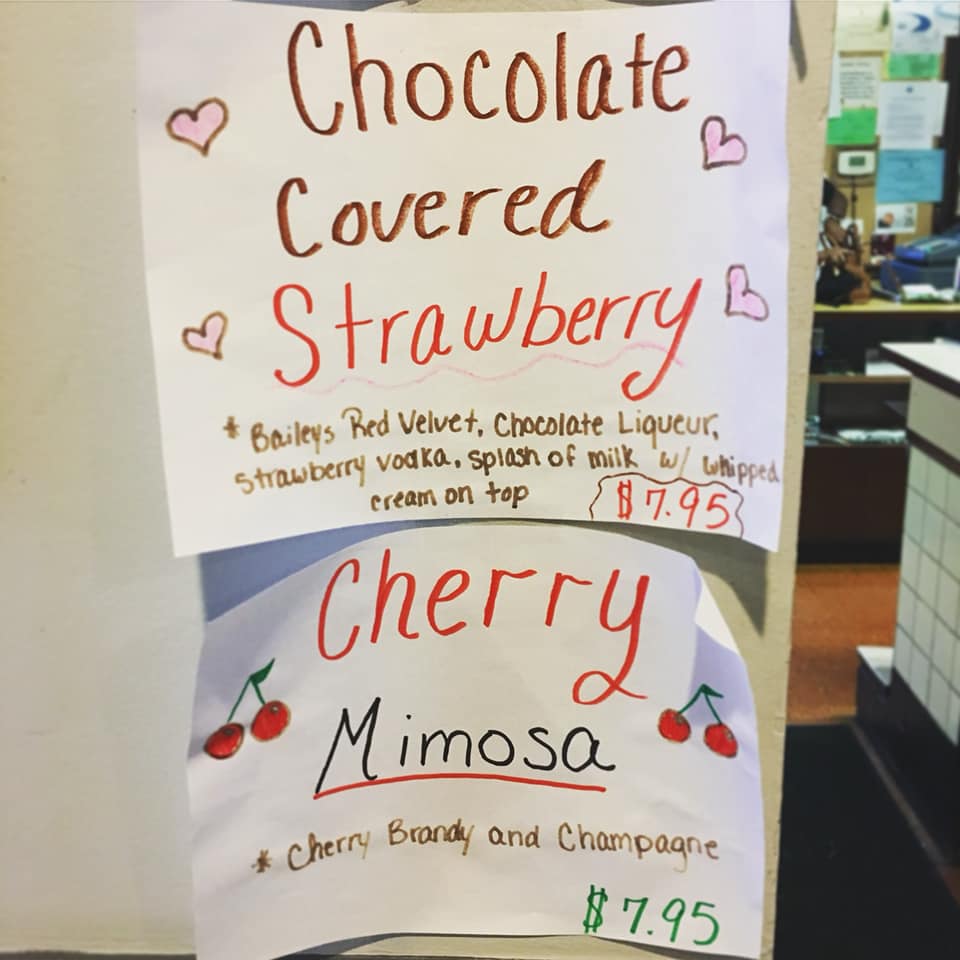 Chocolate
Covered
Strawberry
* Baileys Red Velvet, Chocolate Liqueur,
strawberry vodka, splash of milk w/ whipped
cream on top
$7.95
Cherry
Mimosa
* Cherry Brandy and Champagne
$7.95